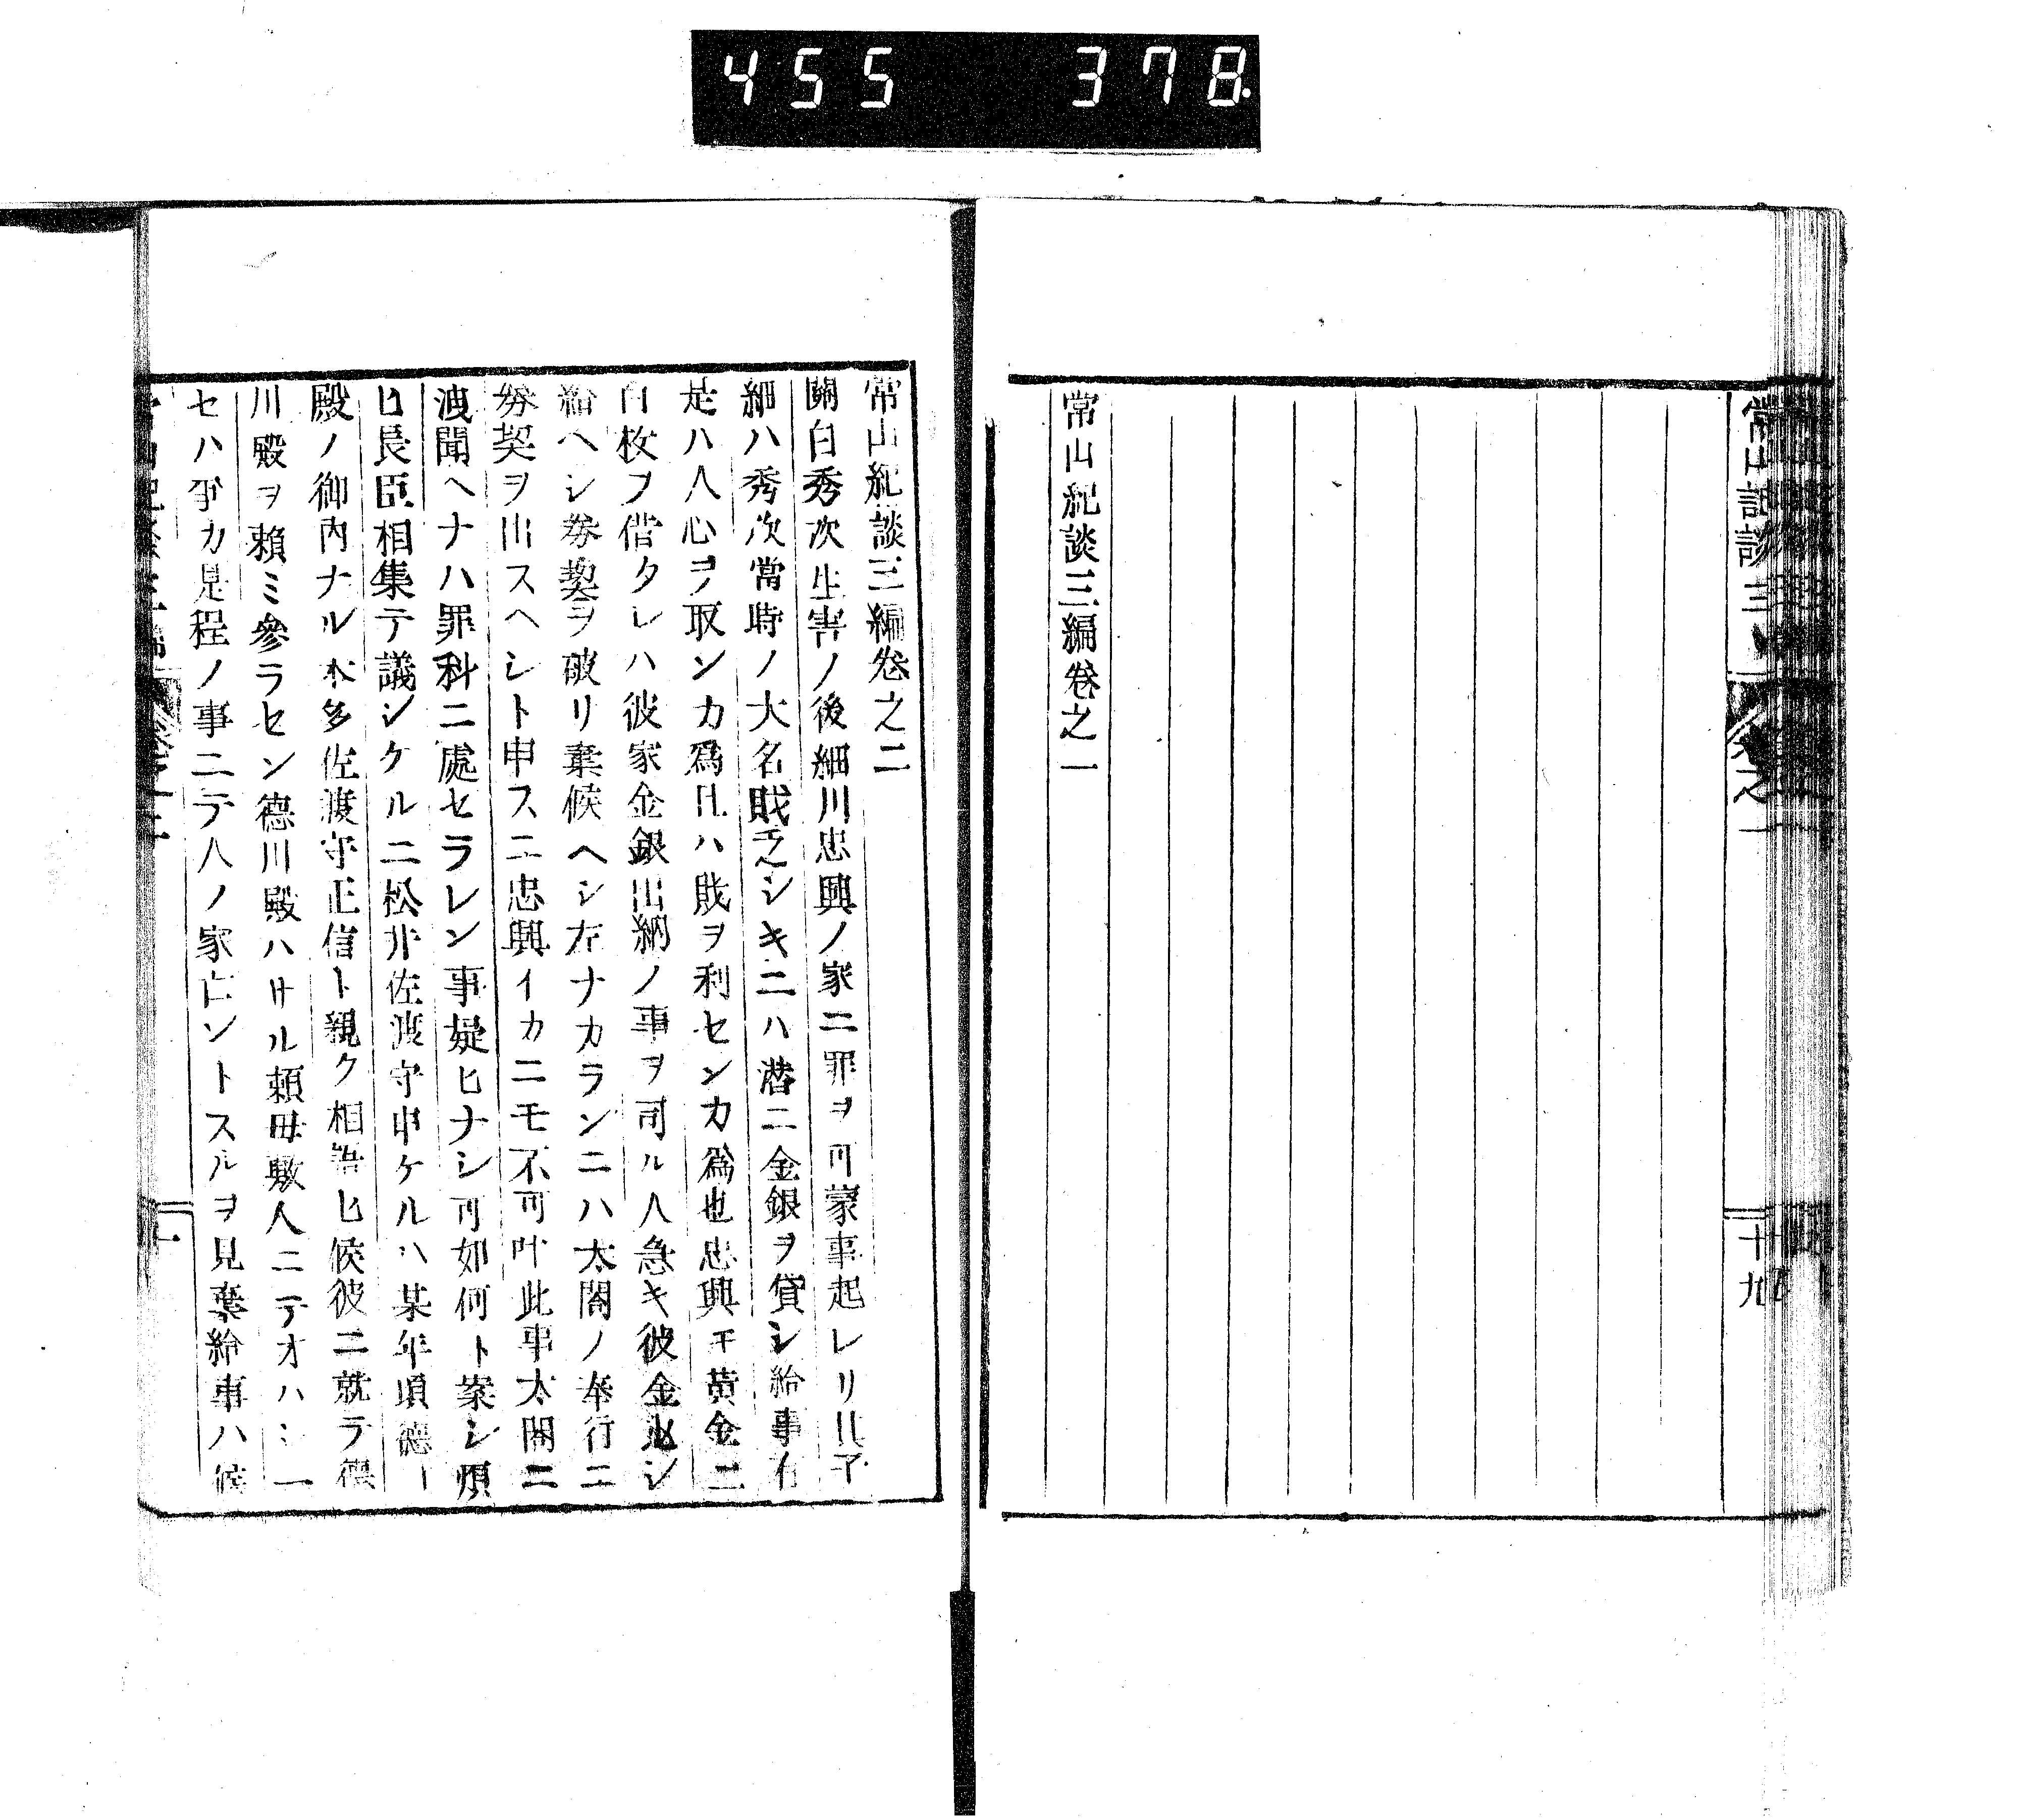 455 378
常山紀談三編卷之一
十九
常山紀談三編卷之一
常山紀談三編卷之二
關白秀次生害ノ後細川忠興ノ家ニ罪ヲ可蒙事起レリ其子
細ハ秀次當時ノ大名戝乏シキニハ潜ニ金銀ヲ貸シ給事有
是ハ人心ヲ取ンカ爲且ハ戝ヲ利センカ爲也忠興モ黄金二
百枚ヲ借タレハ彼家金銀出納ノ事ヲ司ル人急キ彼金返シ
給ヘシ券契ヲ破リ棄候ヘシ左ナカランニハ太閤ノ奉行ニ
券契ヲ出スヘシト申スニ忠興イカニモ不可叶此事太閤ニ
洩聞ヘナハ罪科ニ處セラレン事疑ヒナシ可如何ト案シ煩
ヒ長臣相集テ議シケルニ松井佐渡守申ケルハ某年頃德川
殿ノ御内ナル本多佐渡守正信ト親ク相語ヒ候彼ニ就テ德
川殿ヲ頼ミ參ラセン德川殿ハサル頼母敷人ニテオハシ
セハ爭カ是程ノ事ニテ人ノ家亡ントスルヲ見棄給事ハ候